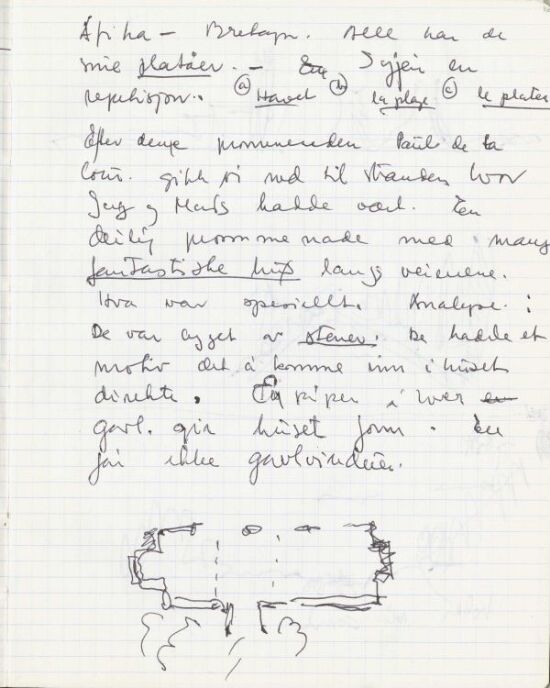 Afrika – Bretagn. Alle har de
sine platåer. – En
repetisjon. (a) Havet (b) la plage (c) le plateau
Efter denne promenaden Pauls de la
Cour. gikk vi ned til stranden hvor
Jeg og Mads hadde vært. En
deilig promenade med mange
fantastiske hus langs veiene.
Hva var spesiellt. Analyse:
De var bygget av stener. De hadde et
motiv det å komme inn i huset
direkte. En piper i hver
gavl. gir huset form. En
får ikke gavlvinduer.